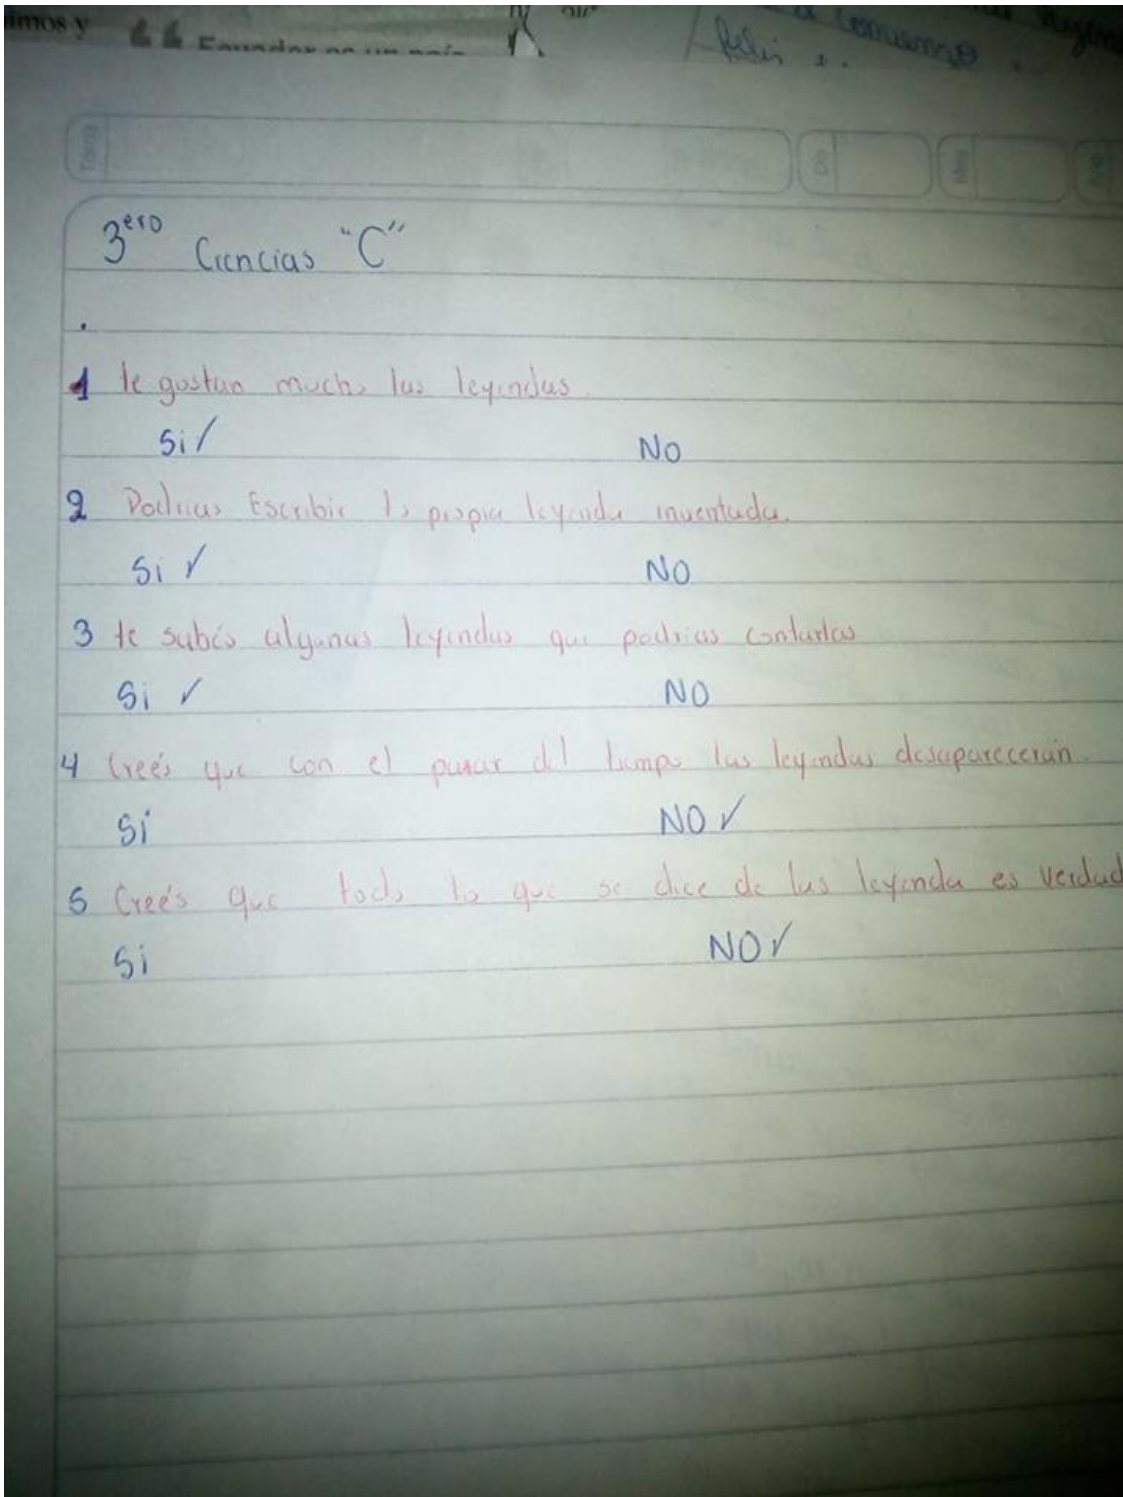 imos y
Ecuador es un país
feliz
comienza
Tema
Día
Mes
Año
3ero Ciencias "C"
.
1 te gustan mucho las leyendas.
Si ✓ NO
2 Podrias Escribir tu propia leyenda inventada.
Si ✓ NO
3 te sabés algunas leyendas que podrias contarlas
Si ✓ NO
4 Creés que con el pasar del tiempo las leyendas desaparecerán.
Si NO ✓
5 Creés que todo lo que se dice de las leyenda es verdad
Si NO ✓